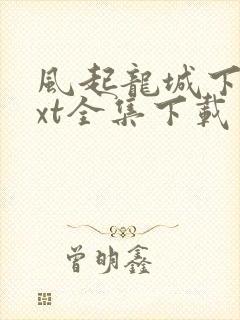 風起龍城下
xt全集下載
曾明鑫